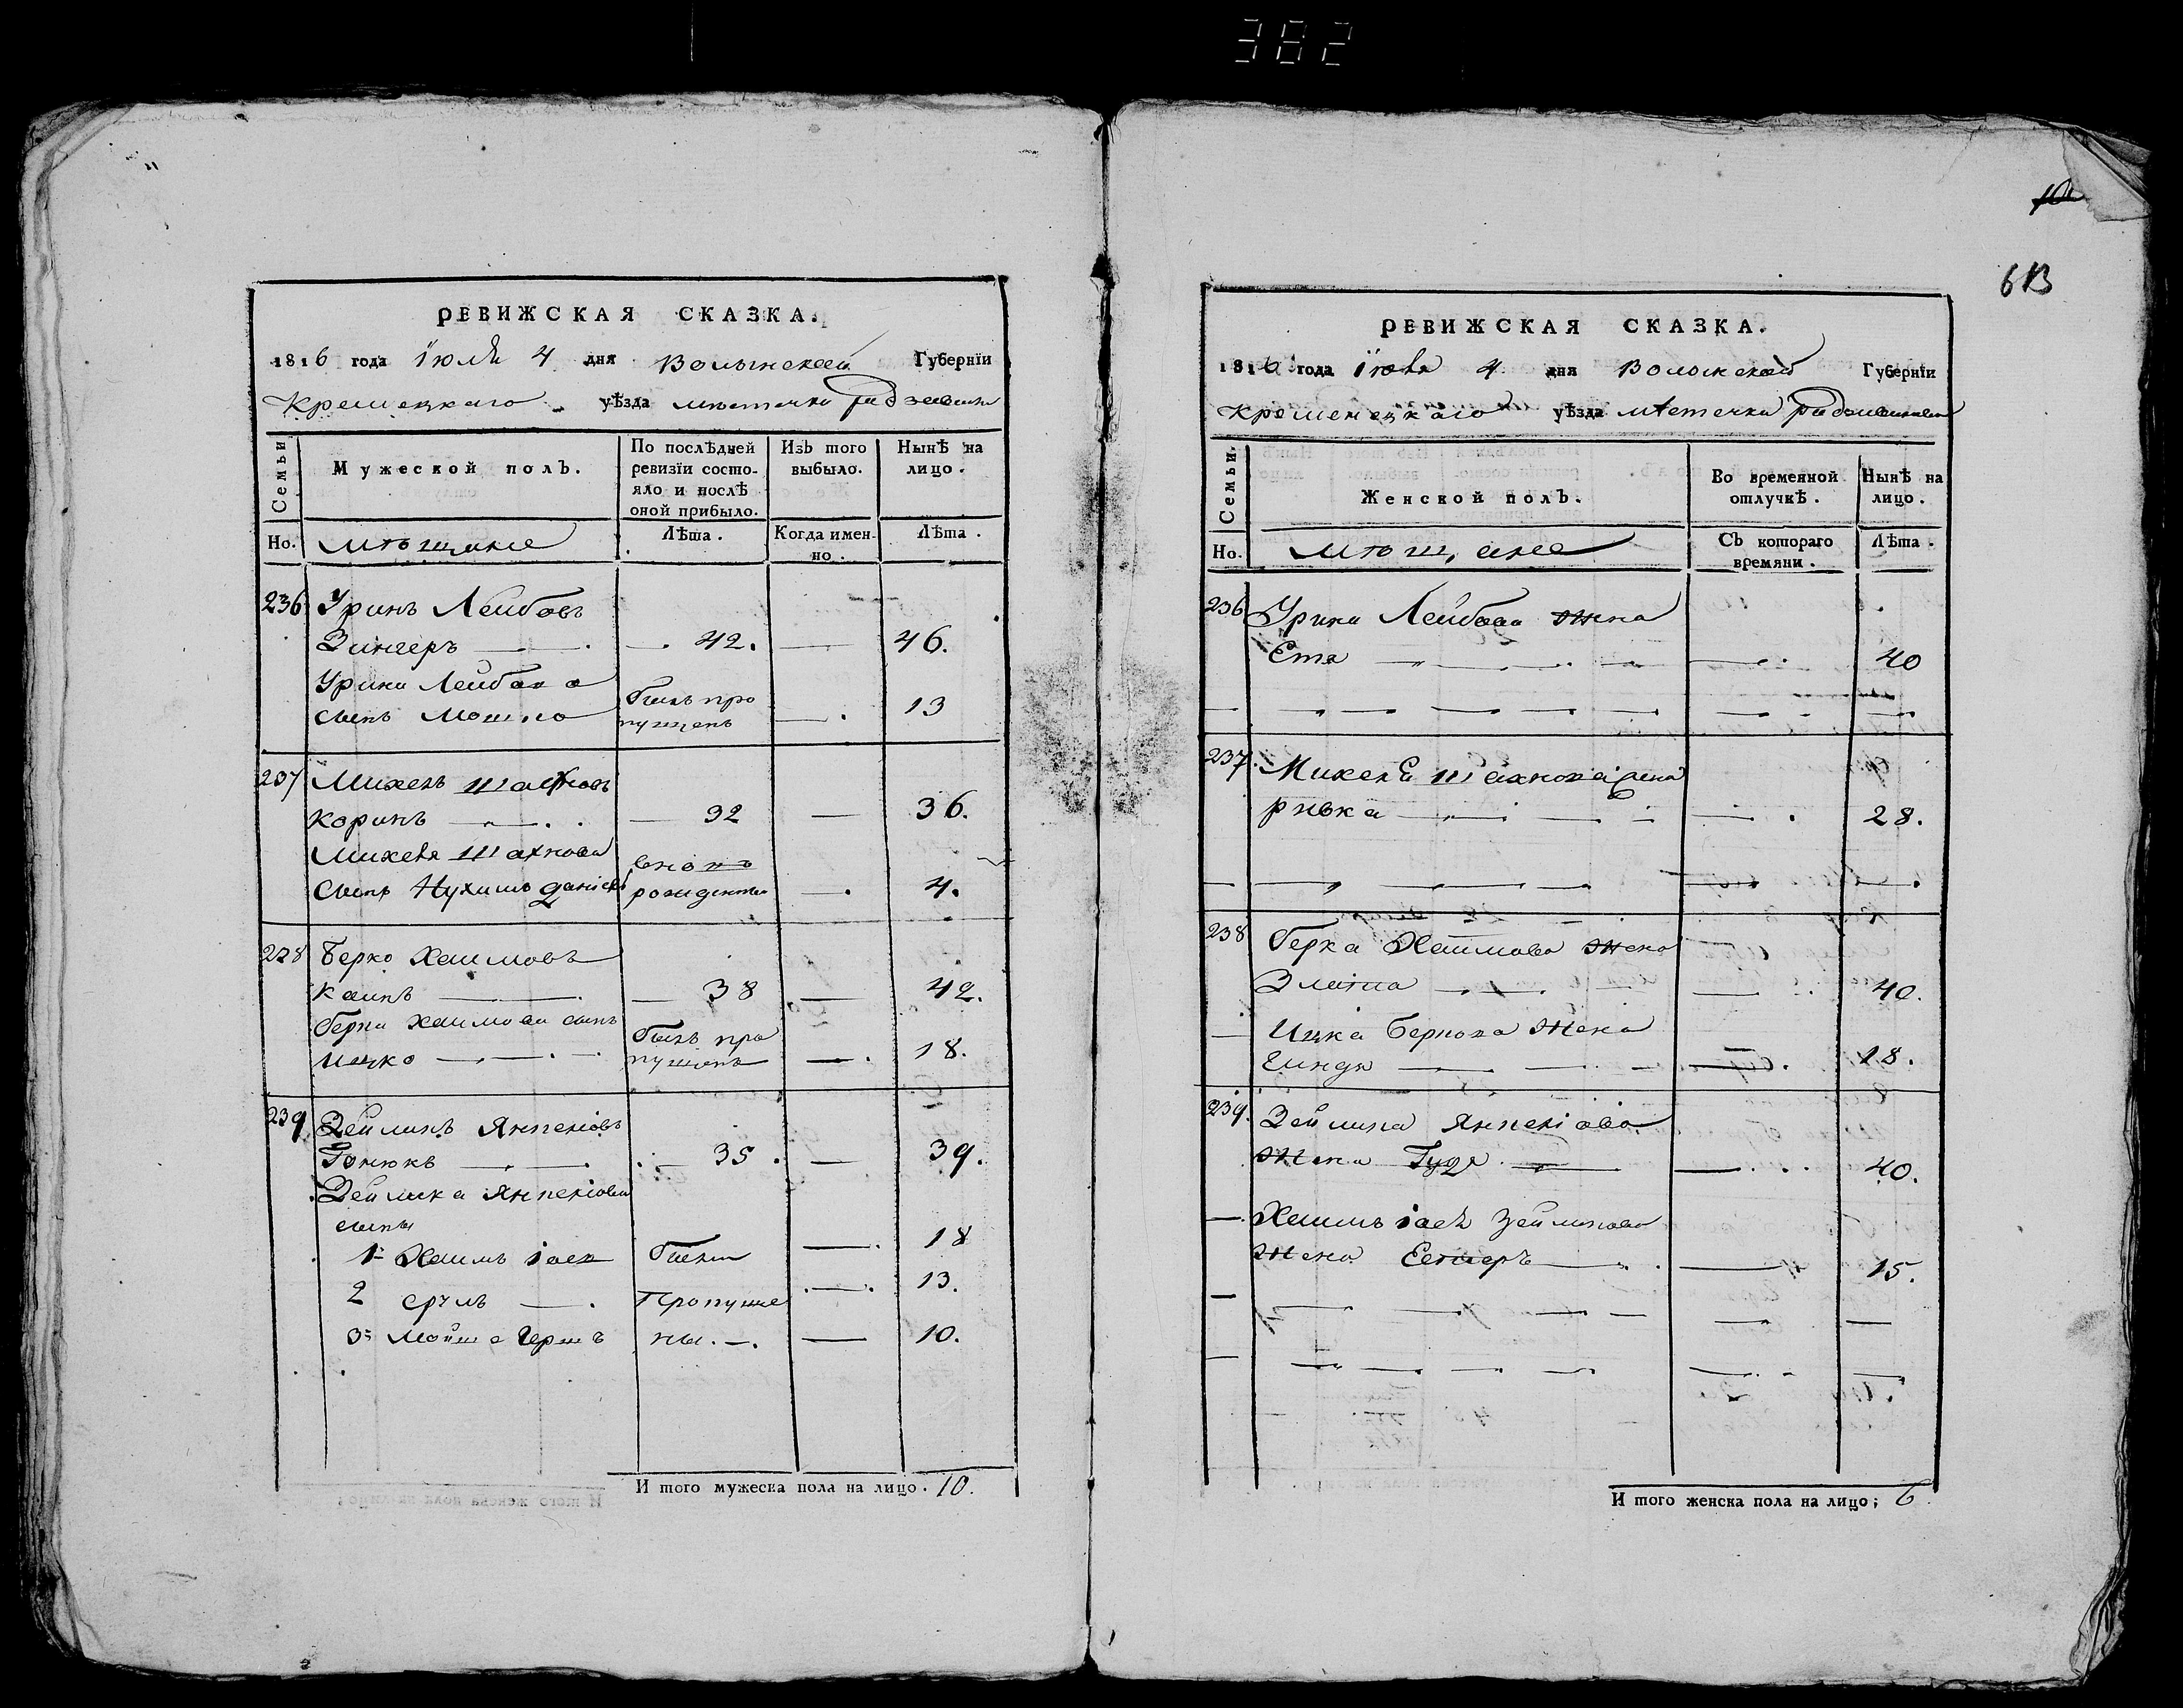 382
10
613
РЕВИЖСКАЯ СКАЗКА.
1816 года Іюля 4 дня Волынской Губерніи
Кременецкаго уѣзда мѣстечка Радзивилова
Семьи
Мужеской полъ.
По послѣдней ревизіи состо-
яло и послѣ
оной прибыло.
Изъ того выбыло.
Нынѣ на лицо.
Но.
мѣщане
Лѣта.
Когда имен-
но.
Лѣта.
236 Уринъ Лейбовъ
Зингеръ — 42. — 46.
Урина Лейбова
сынъ Мошко былъ про
пущенъ — 13
237 Михель Шахновъ
Коринъ — 32 — 36.
Михеля Шахнова
сынъ Нухимъ вновь
рожденъ — 4.
238 Берко Хаимовъ
— 38 — 42.
Берка Хаимова сынъ
Ицко — былъ про
пущенъ — 18.
239 Зейликъ
— 35. — 39.
Зейлика
сыны
1й Хаимъ были — 18
2 Сруль — пропуще — 13.
3й Мойше Гершъ ны. — 10.
И того мужеска пола на лицо. 10.
РЕВИЖСКАЯ СКАЗКА.
1816 года Іюля 4 дня Волынской Губерніи
Кременецкаго уѣзда мѣстечка Радзивилова
Семьи.
Женской полъ.
Во временной
отлучкѣ.
Нынѣ на
лицо.
Но.
мѣщане
Съ котораго
времяни.
Лѣта.
236 Урина Лейбова жена
Етя — 40
237. Михеля Шахнова жена
Ривка — 28.
238 Берка Хаимова жена
Злата — 40.
— Ицка Беркова жена
Гиндя — 18.
239. Зейлика
жена — 40.
— Хаимъ Зейликова
жена Естеръ — 15.
И того женска пола на лицо; 6